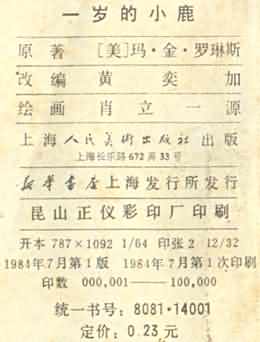 一岁的小鹿
原著 [美]玛·金·罗琳斯
改编 黄奕加
绘画 肖立一源
上海人民美术出版社出版
上海长乐路672弄33号
新华书店上海发行所发行
昆山正仪彩印厂印刷
开本 787×1092 1/64 印张 2 12/32
1984年7月第1版 1984年7月第1次印刷
印数 000,001——100,000
统一书号：8081·14001
定价：0.23元